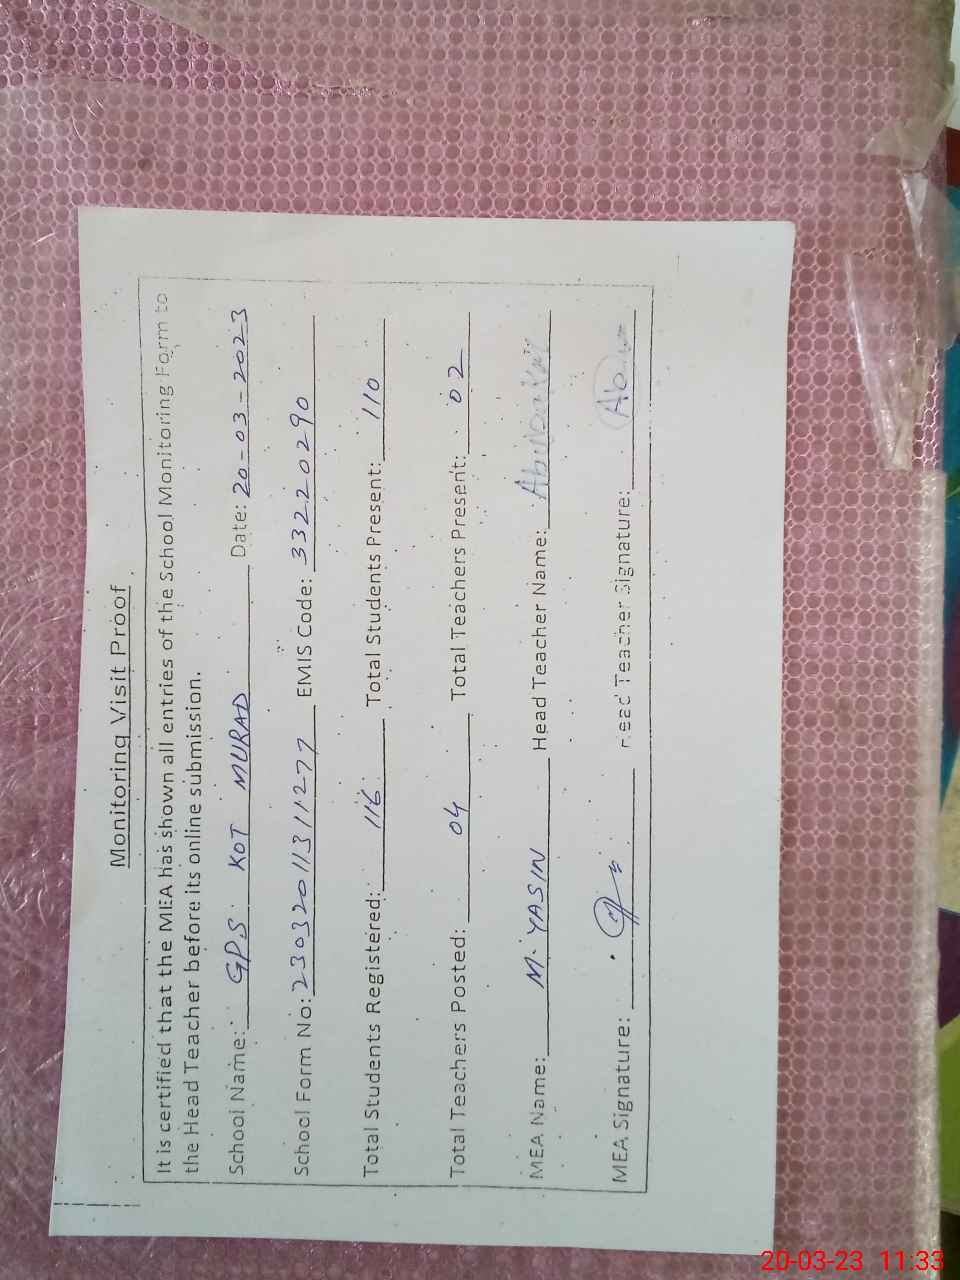 Monitoring Visit Proof
It is certified that the MEA has shown all entries of the School Monitoring Form to
the Head Teacher before its online submission.
School Name: GPS KOT MURAD Date: 20-03-2023
School Form No: 23032011311277 EMIS Code: 33220290
Total Students Registered: 116 Total Students Present: 110
Total Teachers Posted: 04 Total Teachers Present: 02
MEA Name: M. YASIN Head Teacher Name:
MEA Signature: Head Teacher Signature:
20-03-23 11:33